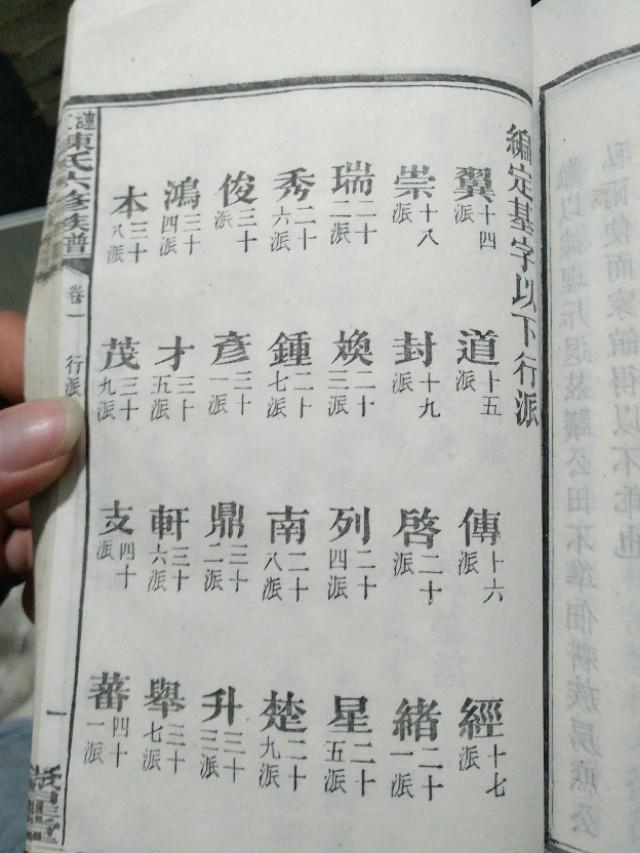 編定基字以下行派
翼十四派 道十五派 傳十六派 經十七派
崇十八派 封十九派 啓二十派 緒二十一派
瑞二十二派 煥二十三派 列二十四派 星二十五派
秀二十六派 鍾二十七派 南二十八派 楚二十九派
俊三十派 彥三十一派 鼎三十二派 升三十三派
鴻三十四派 才三十五派 軒三十六派 舉三十七派
本三十八派 茂三十九派 支四十派 蕃四十一派
漣 陳氏六修族譜 卷一 行派 一